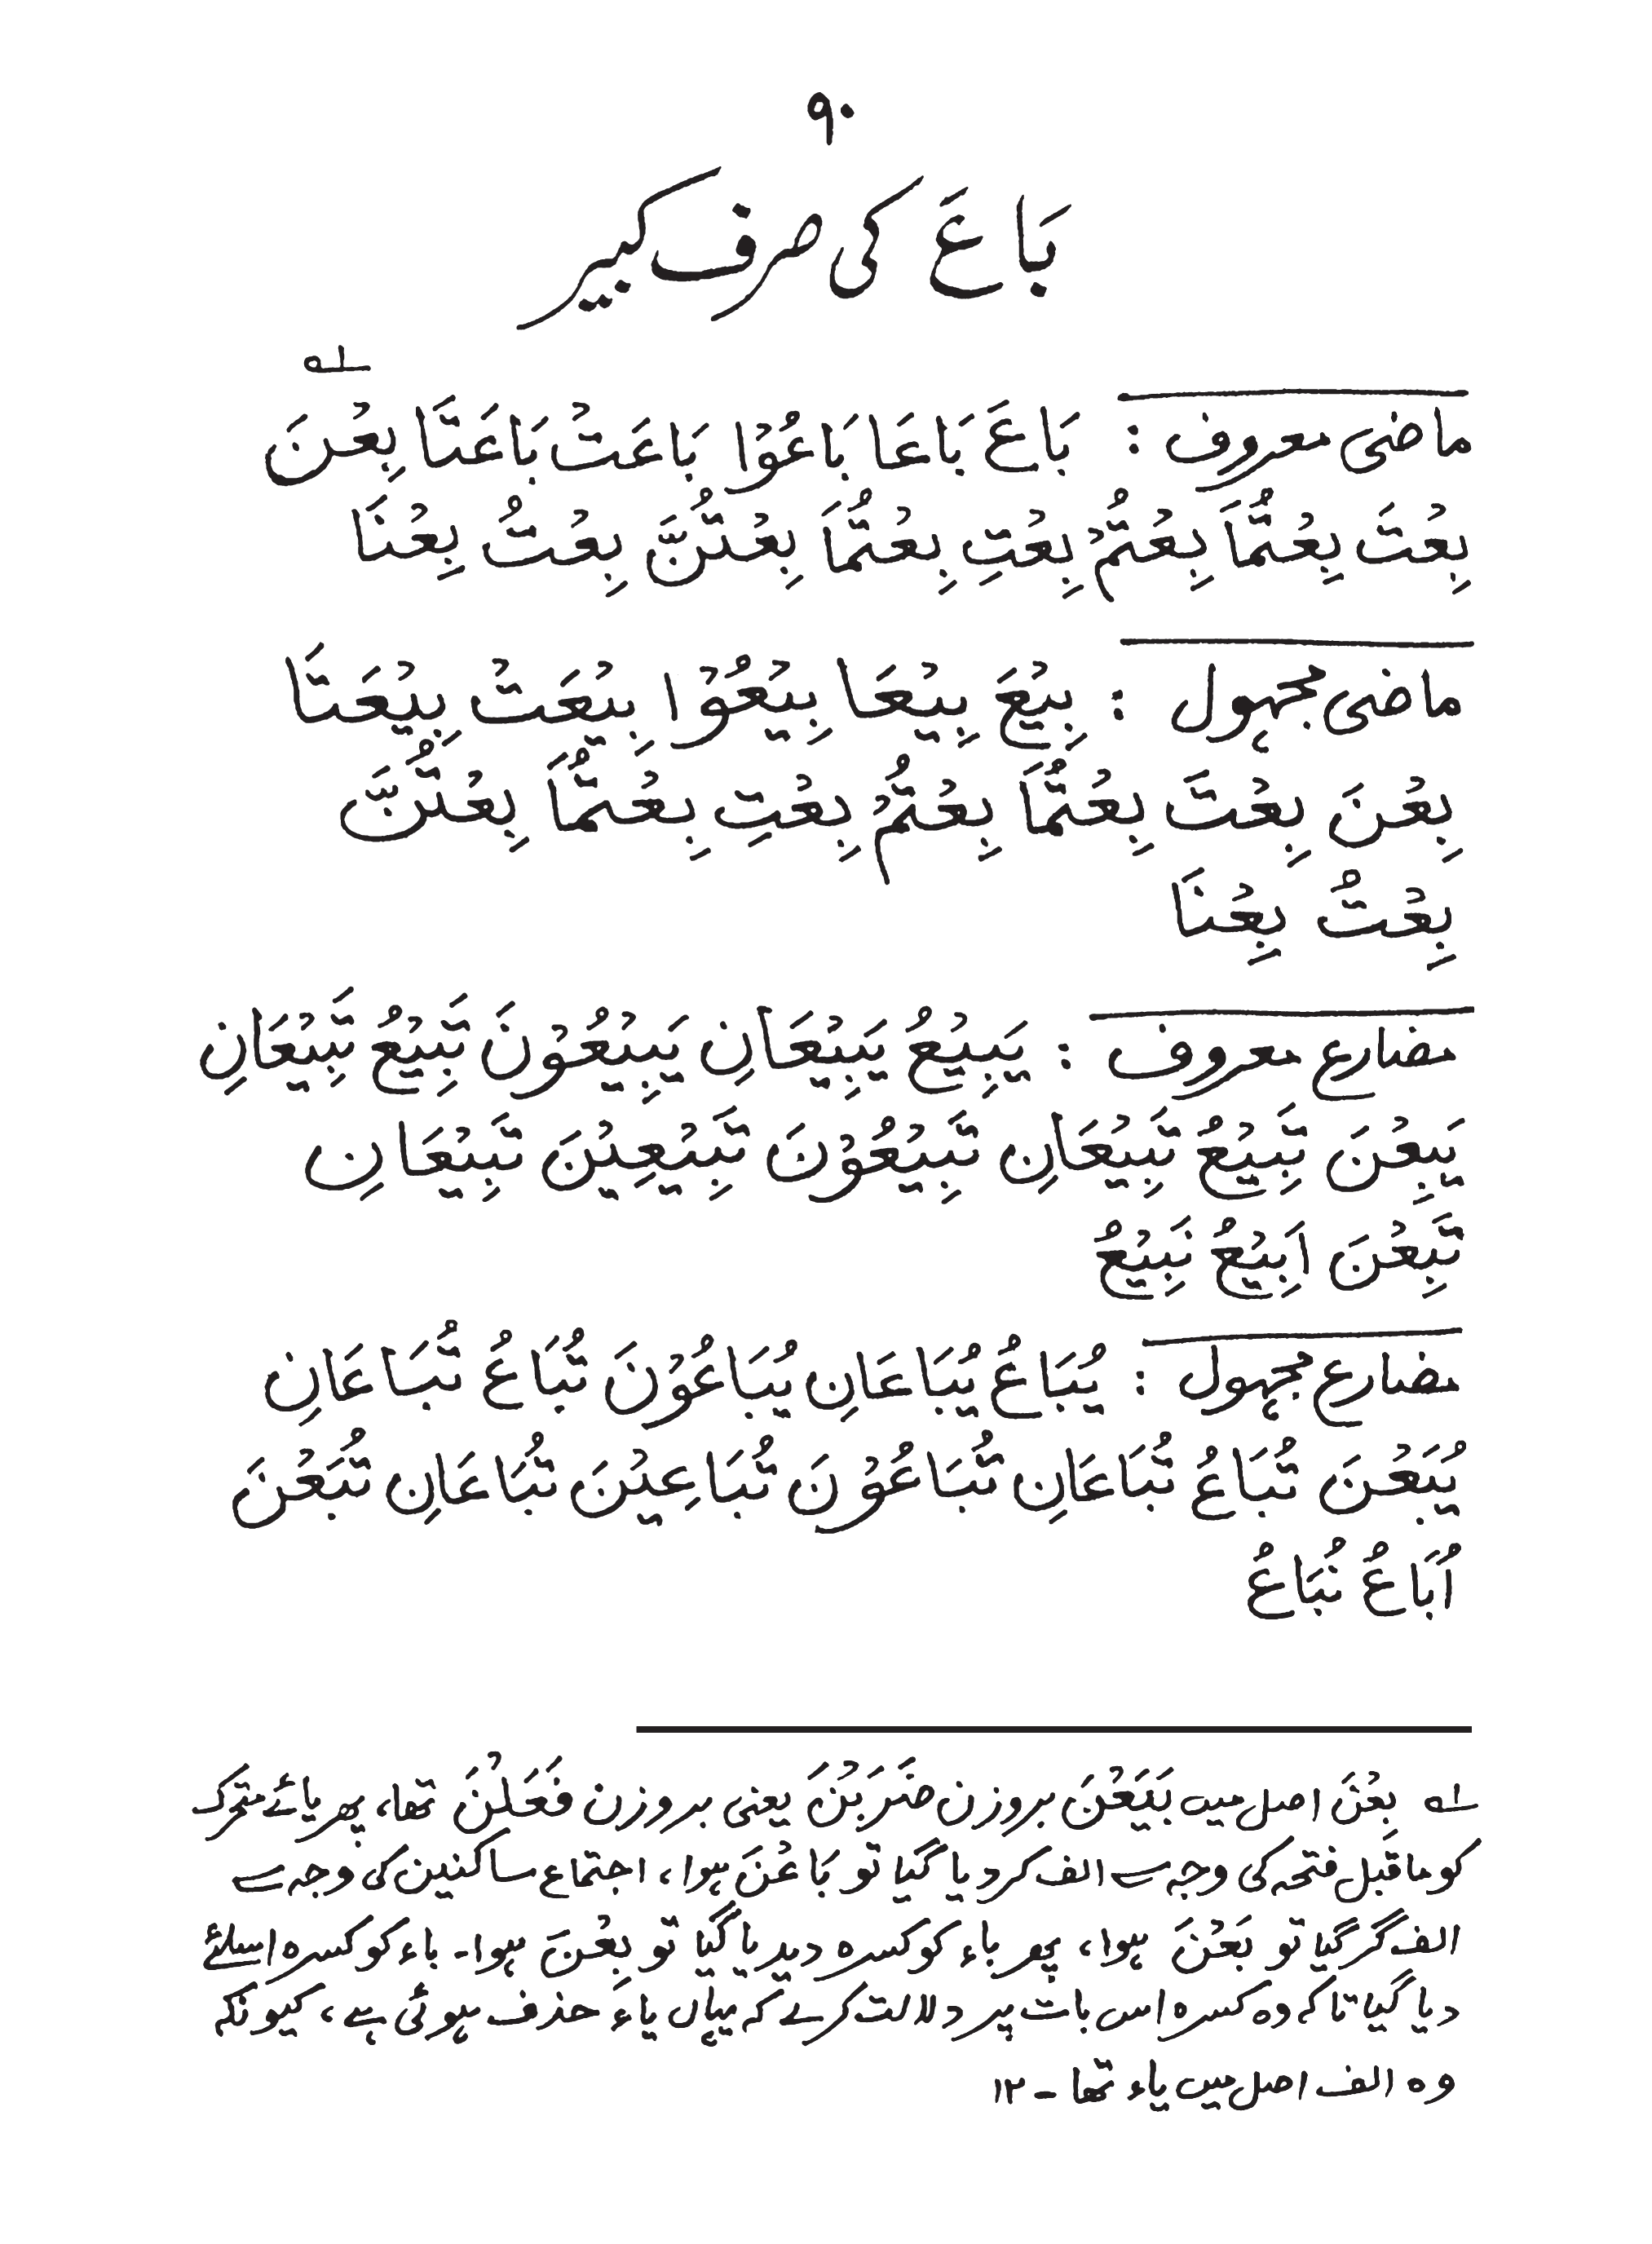 ۹۰
بَاعَ کی صرف کبیر
؎۱
ماضی معروف : بَاعَ بَاعَا بَاعُوْا بَاعَتْ بَاعَتَا بِعْنَ
بِعْتَ بِعْتُمَا بِعْتُمْ بِعْتِ بِعْتُمَا بِعْتُنَّ بِعْتُ بِعْنَا
ماضی مجہول : بِیْعَ بِیْعَا بِیْعُوْا بِیْعَتْ بِیْعَتَا
بِعْنَ بِعْتَ بِعْتُمَا بِعْتُمْ بِعْتِ بِعْتُمَا بِعْتُنَّ
بِعْتُ بِعْنَا
مضارع معروف : یَبِیْعُ یَبِیْعَانِ یَبِیْعُوْنَ تَبِیْعُ تَبِیْعَانِ
یَبِعْنَ تَبِیْعُ تَبِیْعَانِ تَبِیْعُوْنَ تَبِیْعِیْنَ تَبِیْعَانِ
تَبِعْنَ اَبِیْعُ نَبِیْعُ
مضارع مجہول : یُبَاعُ یُبَاعَانِ یُبَاعُوْنَ تُبَاعُ تُبَاعَانِ
یُبَعْنَ تُبَاعُ تُبَاعَانِ تُبَاعُوْنَ تُبَاعِیْنَ تُبَاعَانِ تُبَعْنَ
اُبَاعُ نُبَاعُ
؎۱ بِعْنَ اصل میں بَیَعْنَ بروزن ضَرَبْنَ یعنی بروزن فَعَلْنَ تھا، پھر یائے متحرک
کو ماقبل فتحہ کی وجہ سے الف کردیا گیا تو بَاعْنَ ہوا، اجتماع ساکنین کی وجہ سے
الف گر گیا تو بَعْنَ ہوا، پھر باء کو کسرہ دیدیا گیا تو بِعْنَ ہوا۔ باء کو کسرہ اسلئے
دیا گیا تاکہ وہ کسرہ اس بات پر دلالت کرے کہ یہاں یاء حذف ہوئی ہے، کیونکہ
وہ الف اصل میں یاء تھا ۔ ۱۲